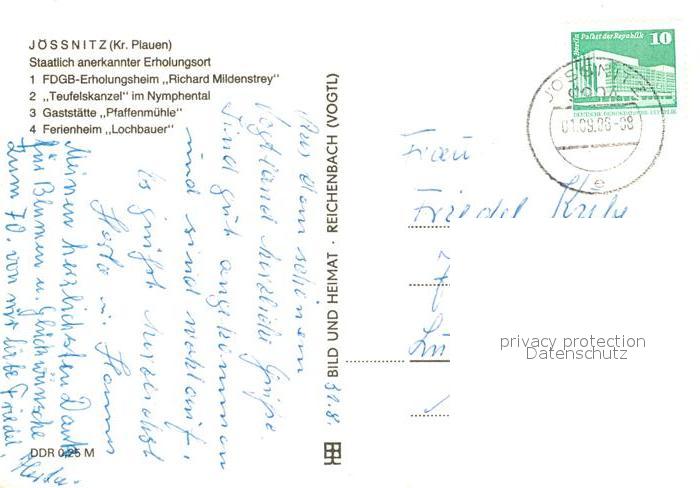 JÖSSNITZ (Kr. Plauen)
Staatlich anerkannter Erholungsort
1 FDGB-Erholungsheim „Richard Mildenstrey"
2 „Teufelskanzel" im Nymphental
3 Gaststätte „Pfaffenmühle"
4 Ferienheim „Lochbauer"
DDR 0,25 M
BILD UND HEIMAT · REICHENBACH (VOGTL)
31.8.
Aus dem schönen
Vogtland herzliche Grüße.
Sind gut angekommen
und sind wohlauf.
Es grüßt herzlichst
Herta u. Hanns
Meinen herzlichsten Dank
für Blumen u. Glückwünsche
zum 70. von mir liebe Friedel,
Herta.
Berlin Palast der Republik
10
DEUTSCHE DEMOKRATISCHE REPUBLIK
JÖSSNITZ
01.09.86-08
e
Frau
Friedel
privacy protection
Datenschutz